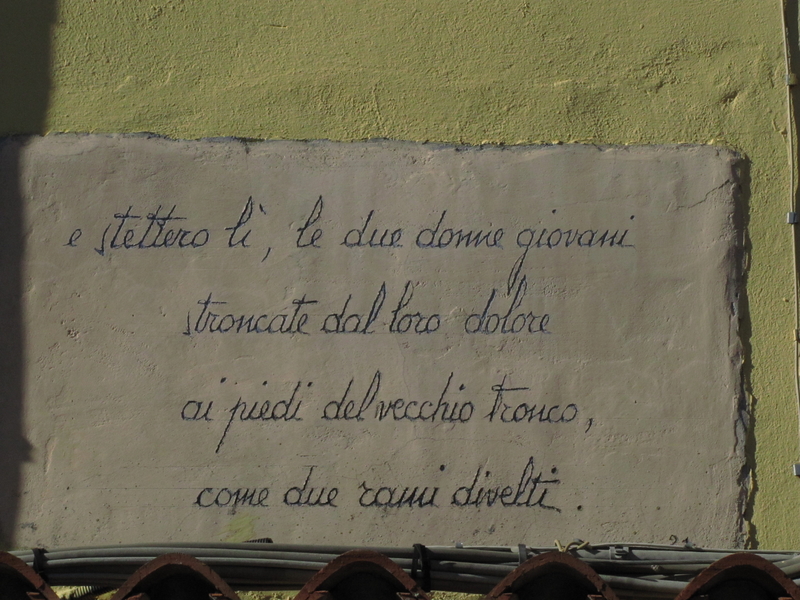 e stettero lì, le due donne giovani
stroncate dal loro dolore
ai piedi del vecchio tronco,
come due rami divelti.